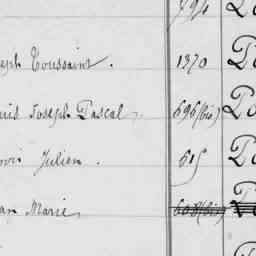 794
seph Toussaint. 1370 Do
uis Joseph Pascal, 696(bis) Do
ovis Julien. 615 Do
an Marie, 608(bis)